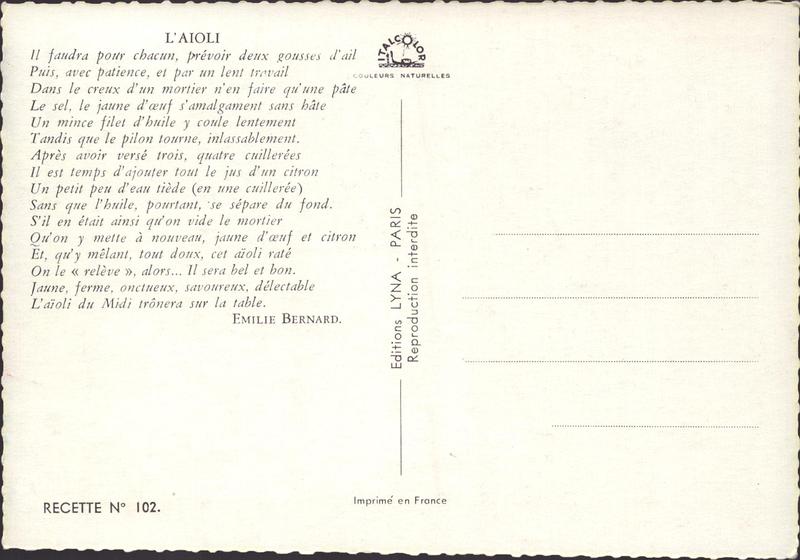 L'AIOLI
Il faudra pour chacun, prévoir deux gousses d'ail
Puis, avec patience, et par un lent travail
Dans le creux d'un mortier n'en faire qu'une pâte
Le sel, le jaune d'œuf s'amalgament sans hâte
Un mince filet d'huile y coule lentement
Tandis que le pilon tourne, inlassablement.
Après avoir versé trois, quatre cuillerées
Il est temps d'ajouter tout le jus d'un citron
Un petit peu d'eau tiède (en une cuillerée)
Sans que l'huile, pourtant, se sépare du fond.
S'il en était ainsi qu'on vide le mortier
Qu'on y mette à nouveau, jaune d'œuf et citron
Et, qu'y mêlant, tout doux, cet aïoli raté
On le « relève », alors... Il sera bel et bon.
Jaune, ferme, onctueux, savoureux, délectable
L'aïoli du Midi trônera sur la table.
EMILIE BERNARD.
RECETTE N° 102.
ITALCOLOR
COULEURS NATURELLES
Editions LYNA - PARIS
Reproduction interdite
Imprimé en France